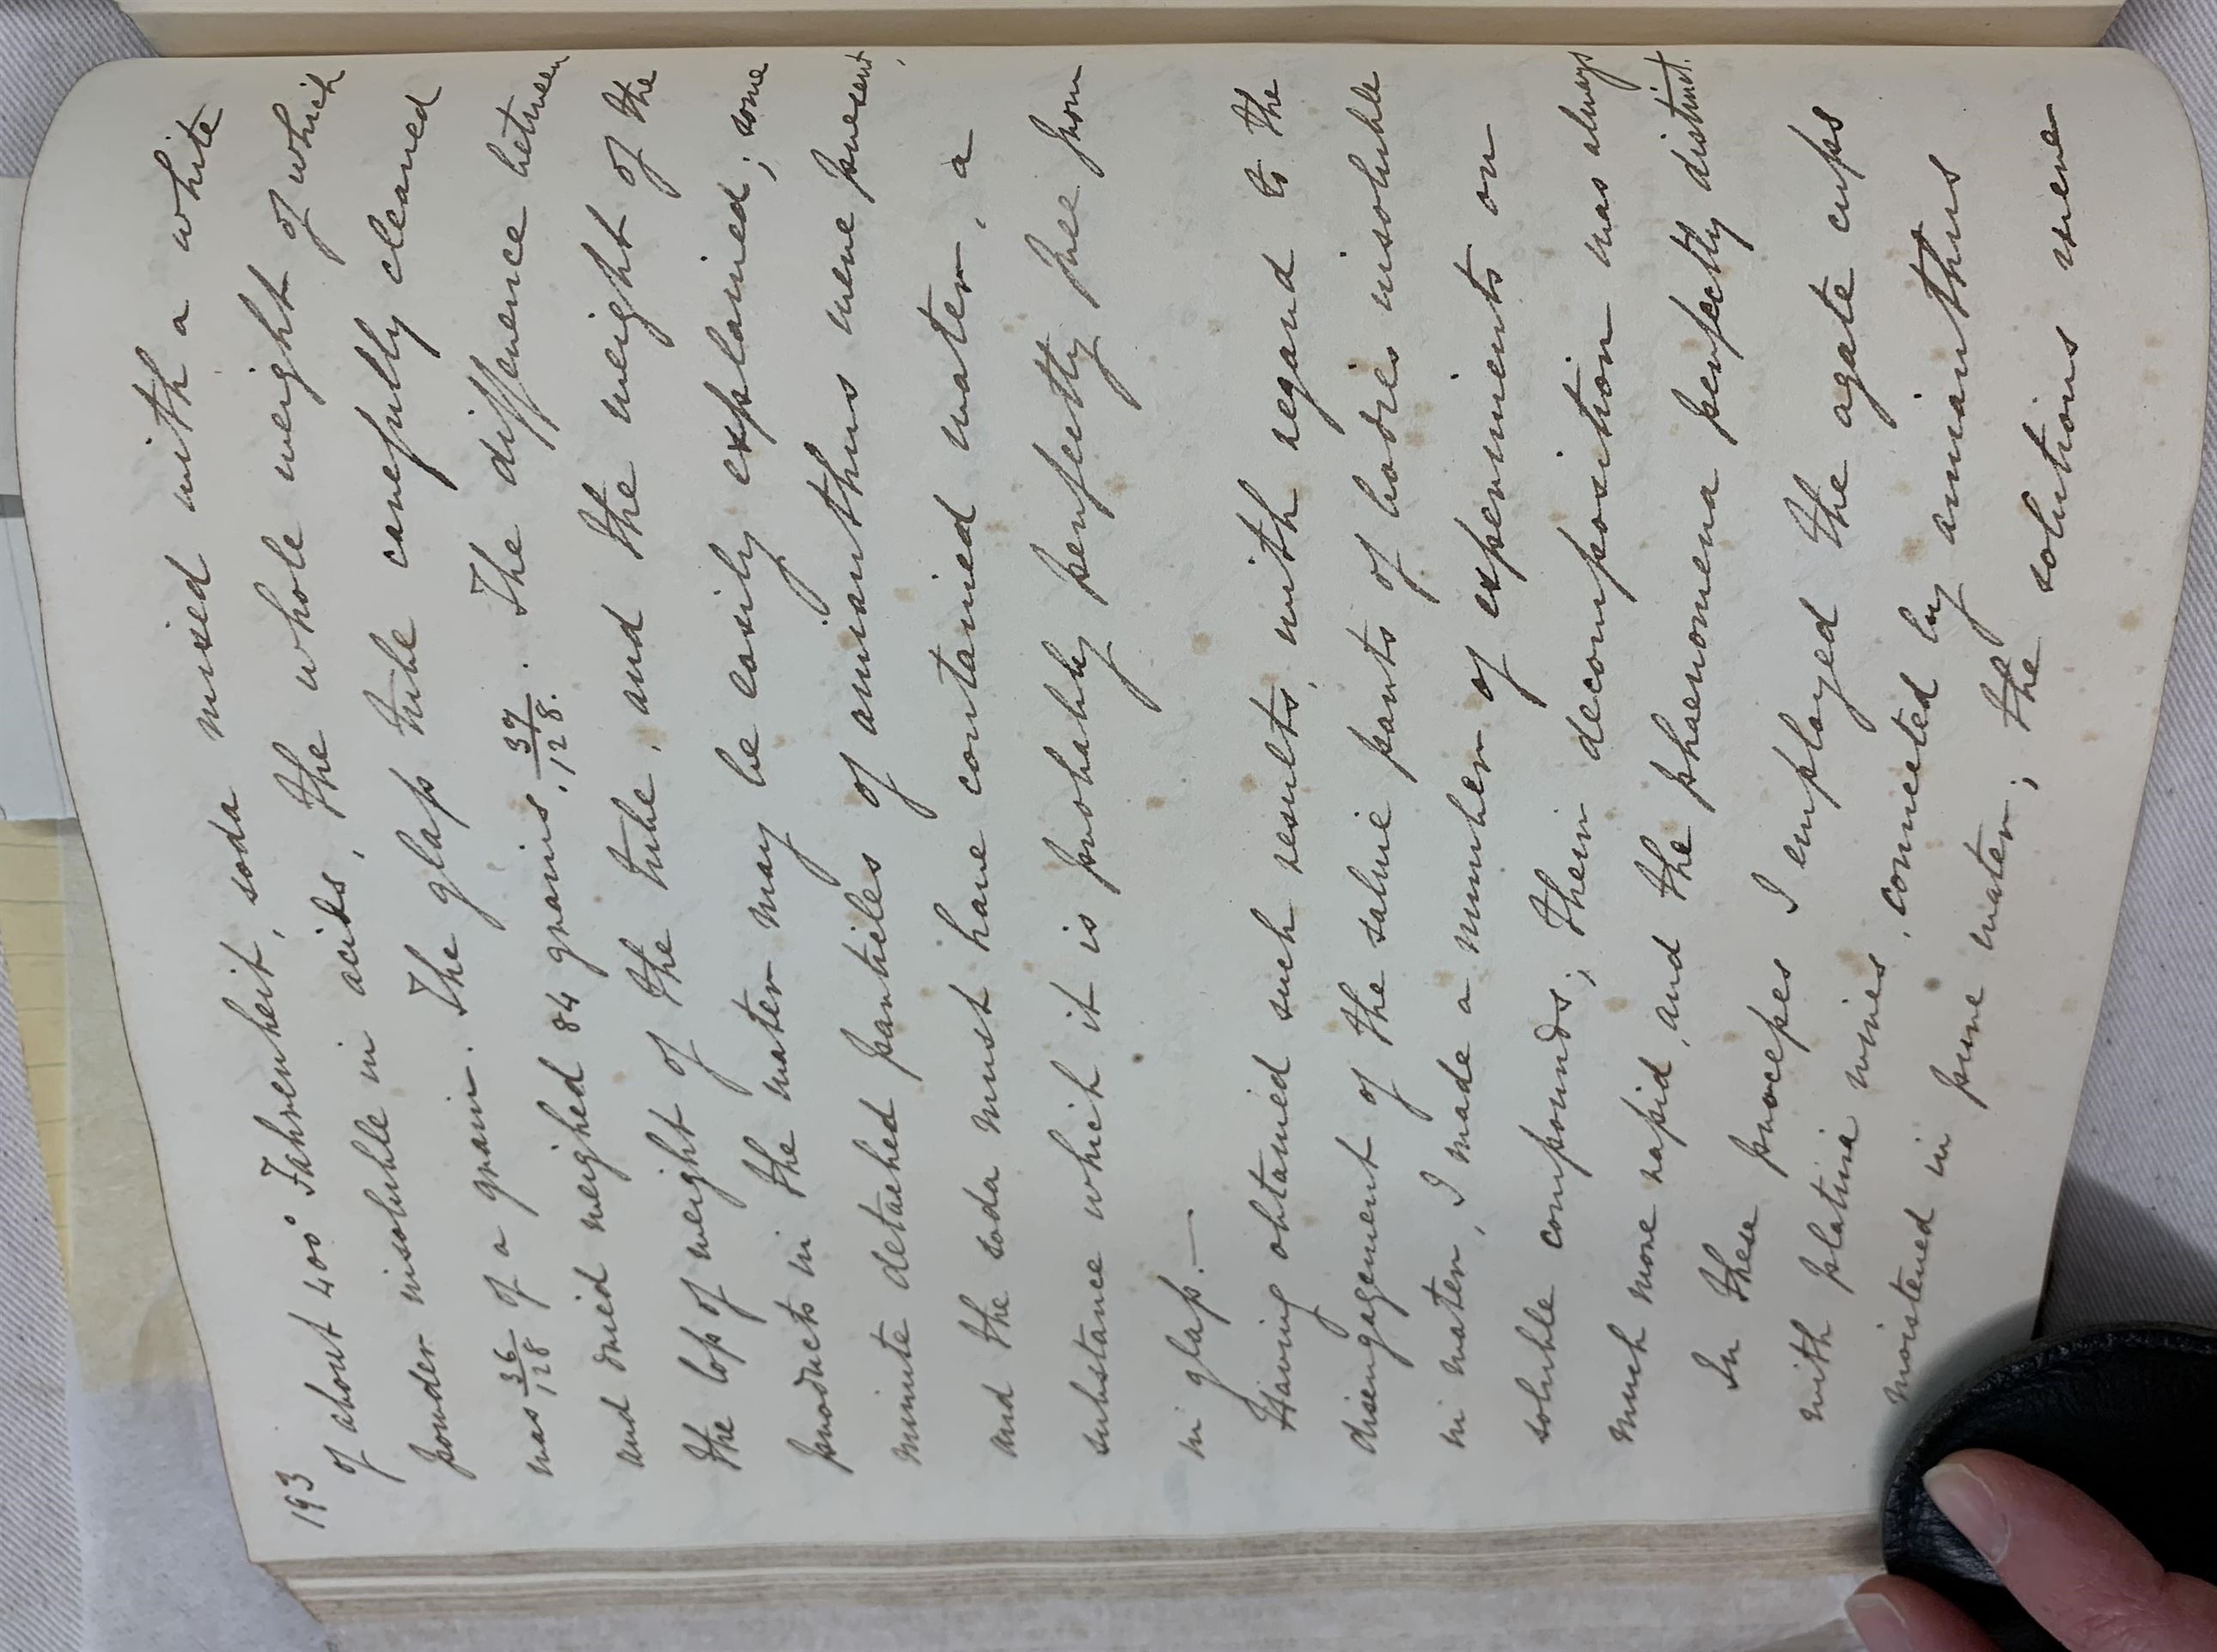 193
of about 400° Fahrenheit, soda mixed with a white
powder insoluble in acids, the whole weight of which
was 36/128 of a grain. The glass tube carefully cleaned
and dried weighed 84 grains, 37/128. The difference between
the loss of weight of the tube, and the weight of the
products in the water may be easily explained; some
minute detached particles of amianthus were present,
and the soda must have contained water, a
substance which it is probably perfectly free from
in glass.—
Having obtained such results, with regard to the
disengagement of the saline parts of bodies insoluble
in water, I made a number of experiments on
soluble compounds; their decomposition was always
much more rapid, and the phaenomena perfectly distinct.
In these processes I employed the agate cups
with platina wires, connected by amianthus
moistened in pure water; the solutions were